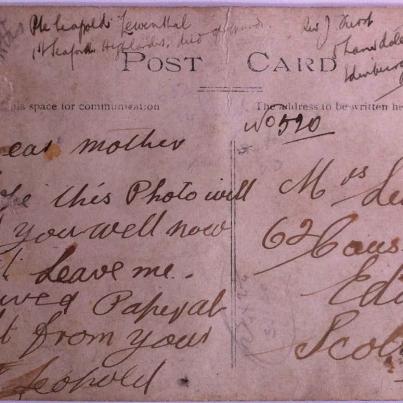 Pte Leopold Lewenthal
Seaforth Highlanders, died of wounds
Rev J. Frost
Lansdale
Edinburgh
POST CARD
is space for communication
The address to be written he
No 520
ear mother
this Photo will
you well now
Leave me.
ved Paper al
t from your
Leopold
Mrs Le
62 Caus
Edi
Scotl